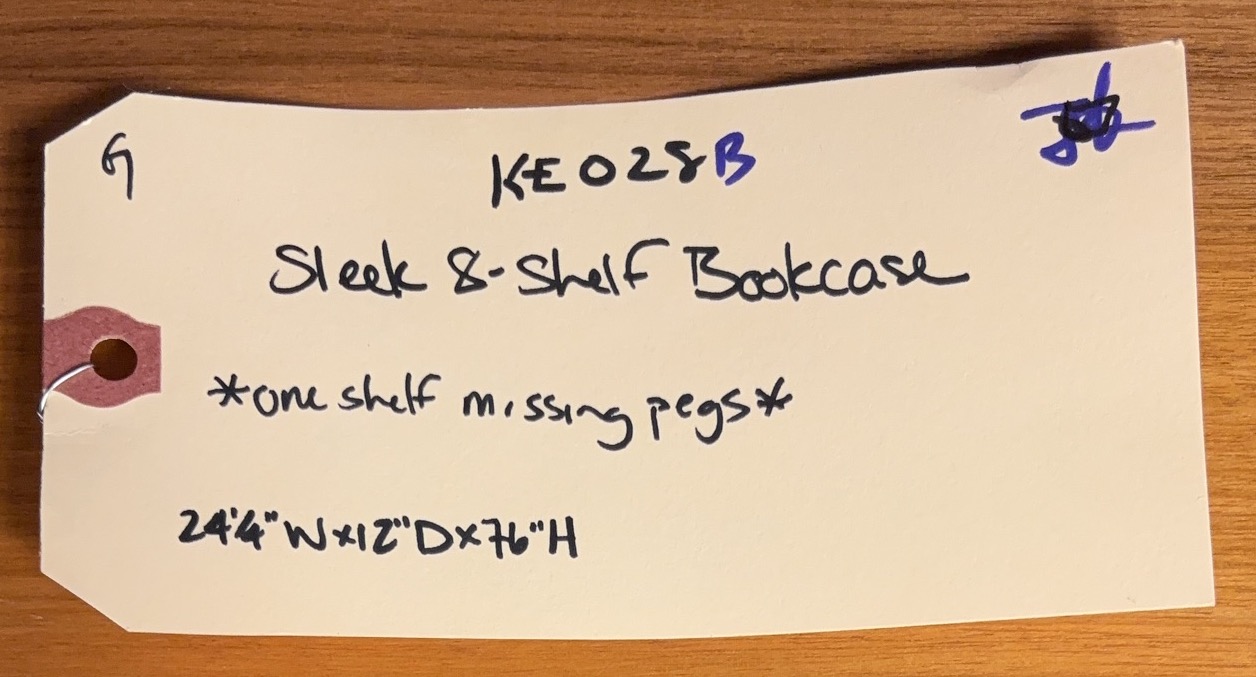 G
KE028B
Sleek 8-Shelf Bookcase
*one shelf missing pegs*
24'4"W x 12"D x 76"H